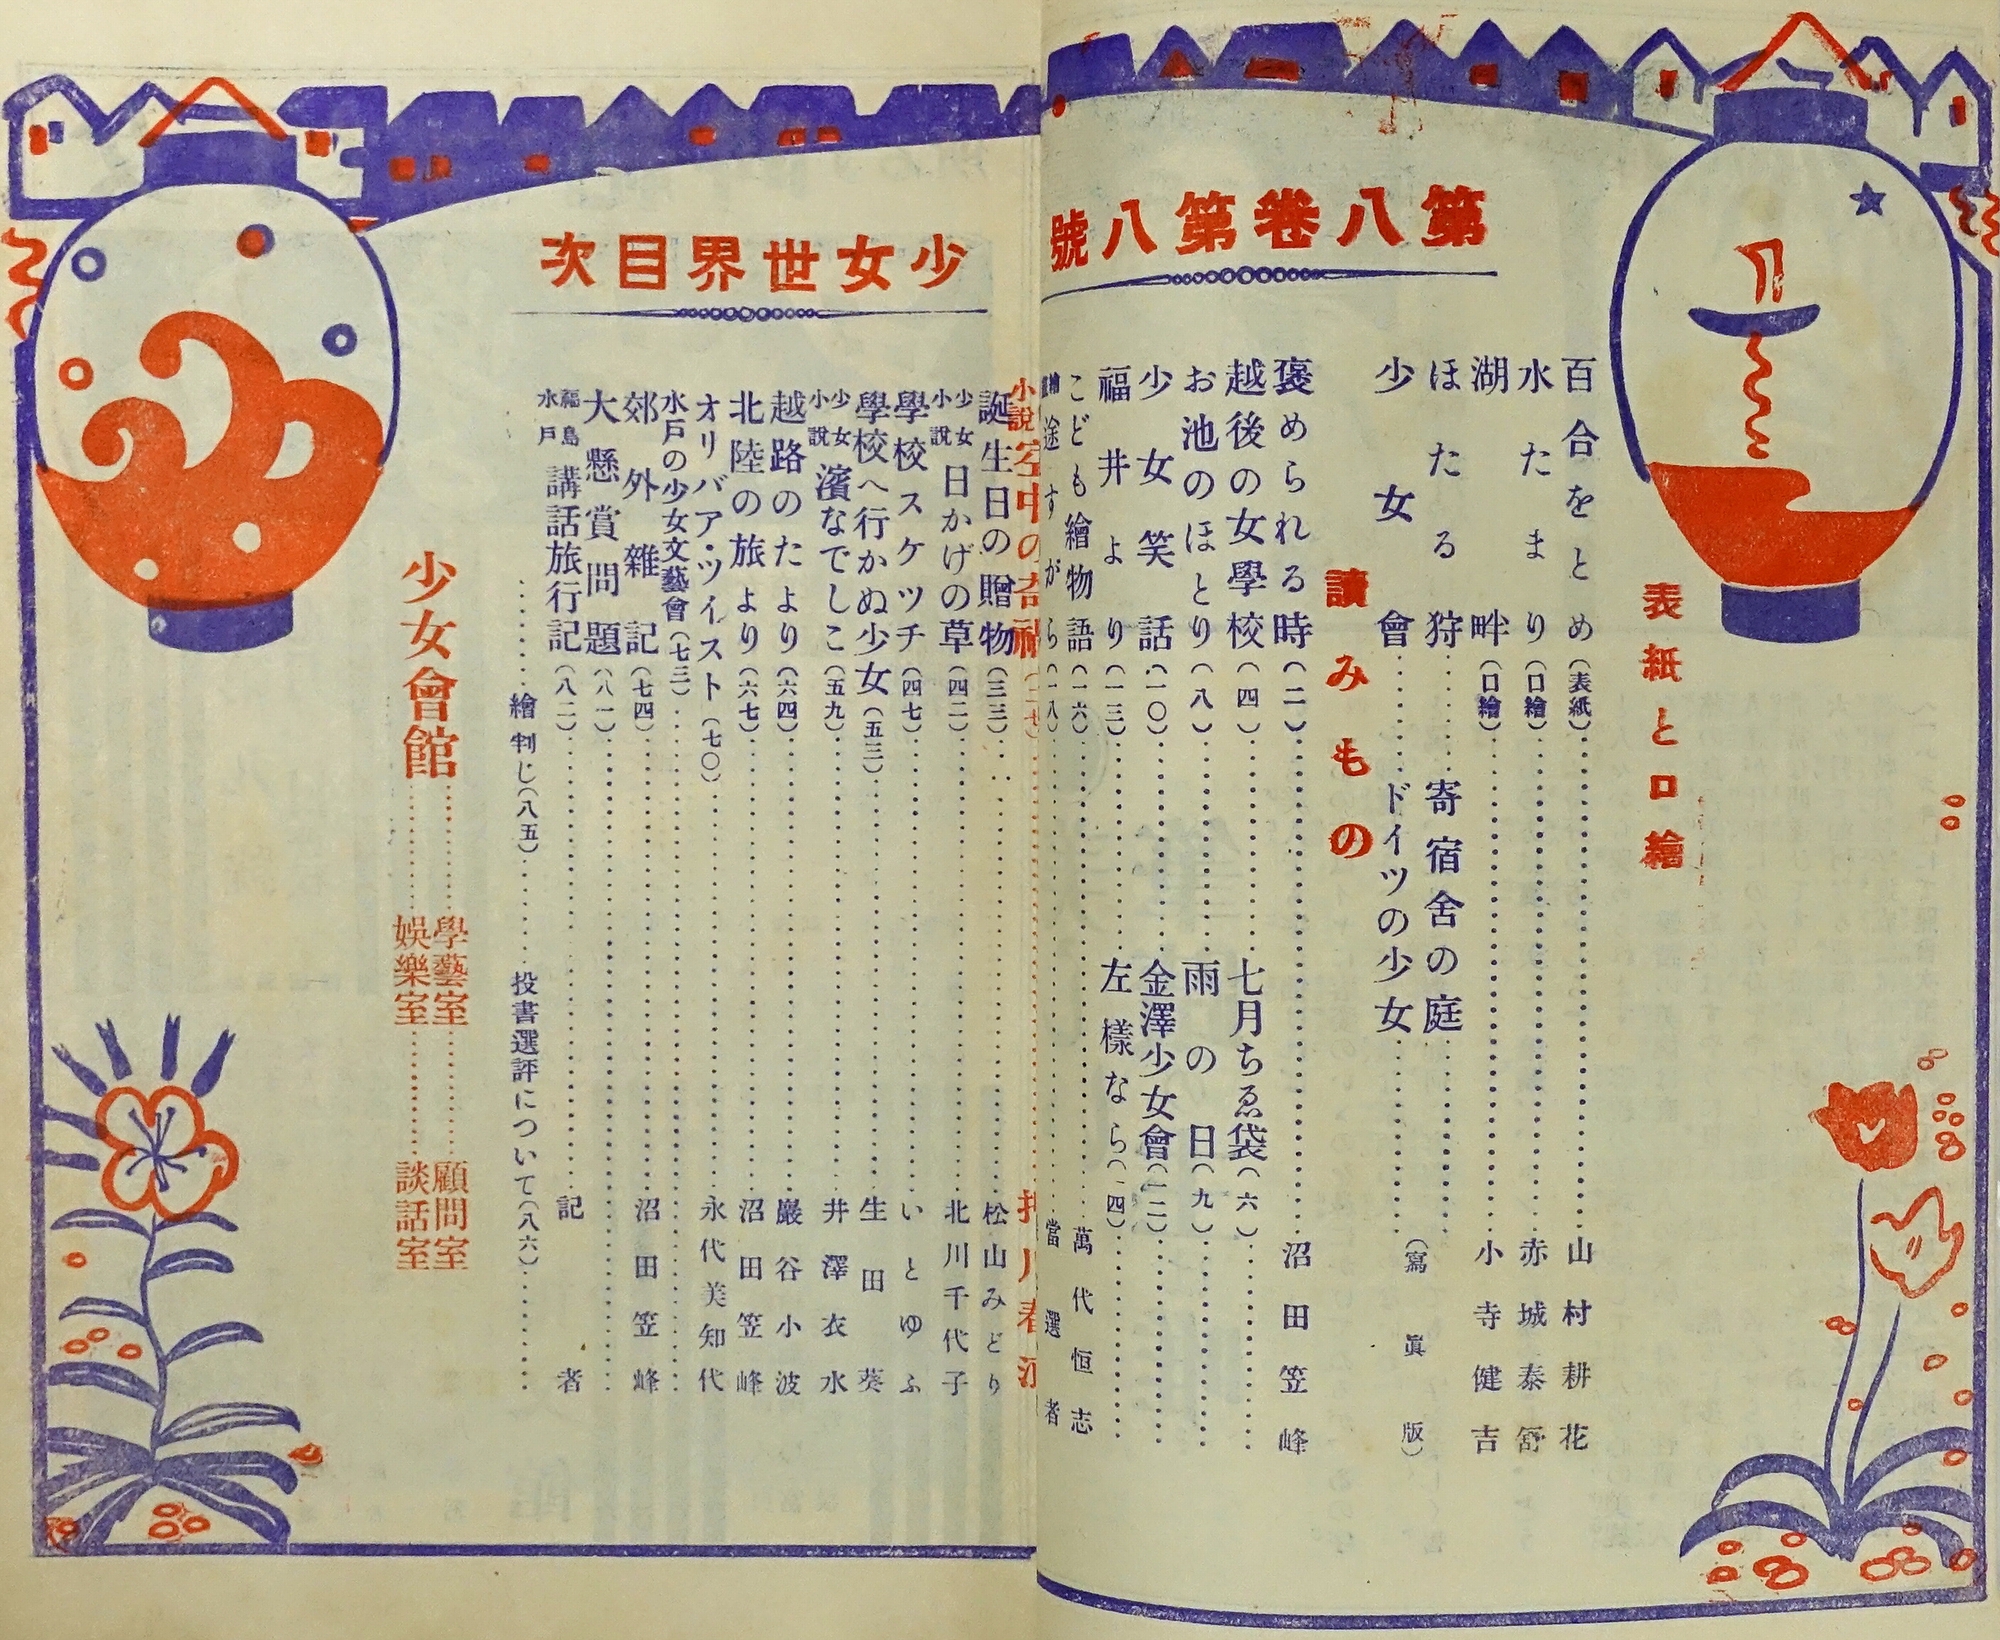 第八卷第八號
少女世界目次
表紙と口繪
百合をとめ(表紙)……山村耕花
水たまり(口繪)……赤城泰舒
湖畔(口繪)……小寺健吉
ほたる狩……寄宿舍の庭……
少女會……ドイツの少女……(寫眞版)
讀みもの
褒められる時(二)……沼田笠峰
越後の女學校(四)……七月ちゑ袋(六)……
お池のほとり(八)……雨の日(九)……
少女笑話(一〇)……金澤少女會(一二)……
福井より(一三)……左樣なら(一四)……
こども繪物語(一六)……萬代恒志
途すがら(一八)……當選者
小說空中の奇禍……押川春浪
誕生日の贈物(三三)……松山みどり
少女小說日かげの草(四二)……北川千代子
學校スケツチ(四七)……いとゆふ
學校へ行かぬ少女(五三)……生田葵
少女小說濱なでしこ(五九)……井澤衣水
越路のたより(六四)……巖谷小波
北陸の旅より(六七)……沼田笠峰
オリバア・ツイスト(七〇)……永代美知代
水戸の少女文藝會(七三)……
郊外雜記(七四)……沼田笠峰
大懸賞問題(八一)……
福島水戸講話旅行記(八二)……記者
……繪判じ(八五)……投書選評について(八六)……
少女會館……學藝室……顧問室
娛樂室……談話室